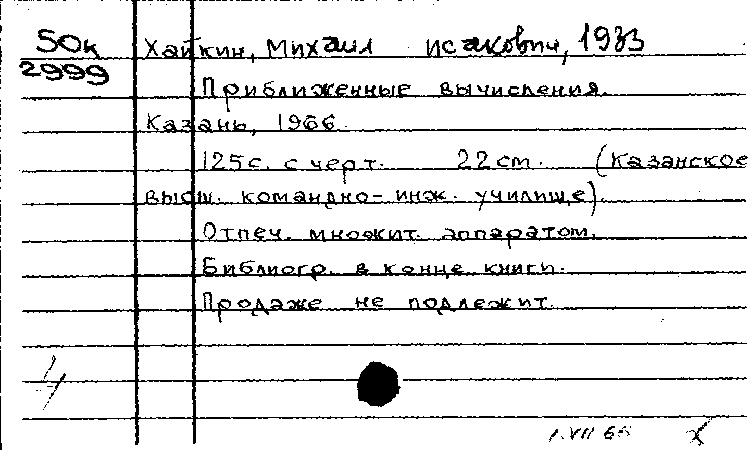 50к
2999
Хайкин, Михаил Исакович, 1933
Приближенные вычисления.
Казань, 1966.
125с. с черт. 22cm. (Казанское
высш. командно-инж. училище).
Отпеч. множит. аппаратом.
Библиогр. в конце книги.
Продаже не подлежит.